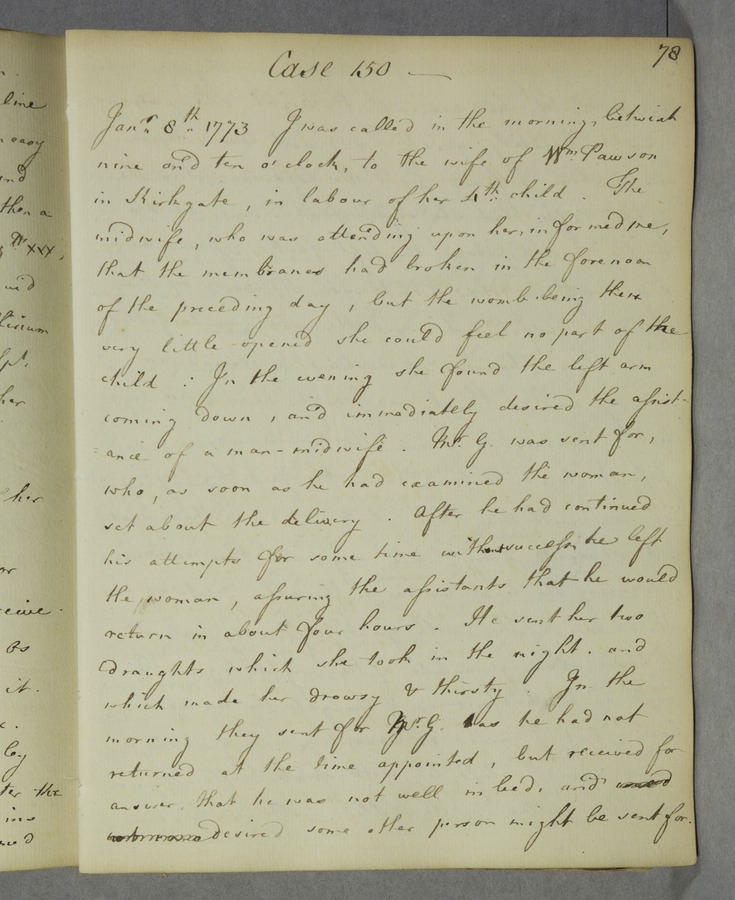 78
Case 150
Janr. 8th 1773 I was called in the morning, betwixt
nine and ten o'clock, to the wife of Wm Pawson
in Kirkgate, in labour of her 4th child. The
midwife, who was attending upon her, informed me,
that the membranes had broken in the forenoon
of the preceding day, but the womb being then
very little opened she could feel no part of the
child: In the evening she found the left arm
coming down, and immediately desired the assist-
ance of a man-midwife. Mr. G. was sent for,
who, as soon as he had examined the woman,
set about the delivery. After he had continued
his attempts for some time without success he left
the woman, assuring the assistants that he would
return in about four hours. He sent her two
draughts which she took in the night. and
which made her drowsy & thirsty. In the
morning they sent for Mr. G. as he had not
returned at the time appointed, but received for
answer, that he was not well in bed, and
desired some other person might be sent for.
line
easy
and
then a
xxx,
her
her
As
it.
ter the